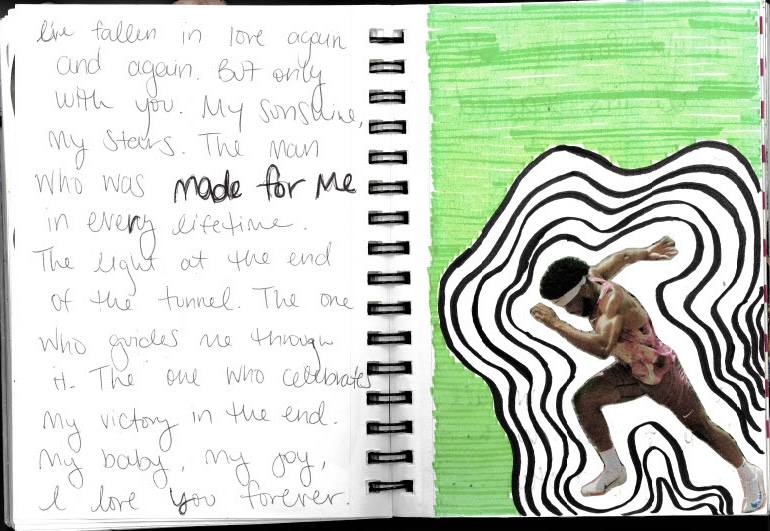 I've fallen in love again
and again. But only
with you. My sunshine,
my stars. The man
who was made for me
in every lifetime.
The light at the end
of the tunnel. The one
who guides me through
it. The one who celebrates
my victory in the end.
My baby, my joy,
I love you forever.